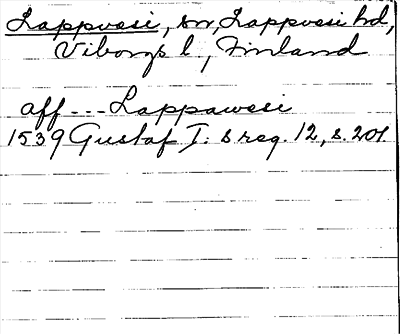 Lappvesi, sn, Lappvesi hd,
Viborgs l, Finland
aff --- Lappawesi
1539 Gustaf I: s reg. 12, s. 201.